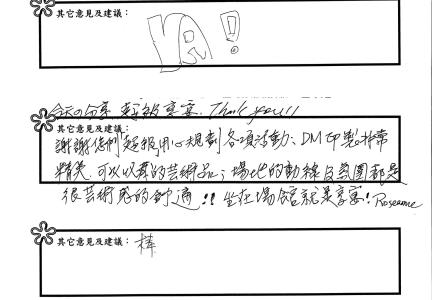 其它意見及建議：
YA!
今天の分享, 超級享宴. Thank you!!!
其它意見及建議：
謝謝您們超級用心規劃各項活動、DM印製非常
精美 可以以算的藝術品；場地的動線及氛圍都是
很芸術感的舒適!! 坐在場館就是享宴! Roseanne
其它意見及建議：
棒